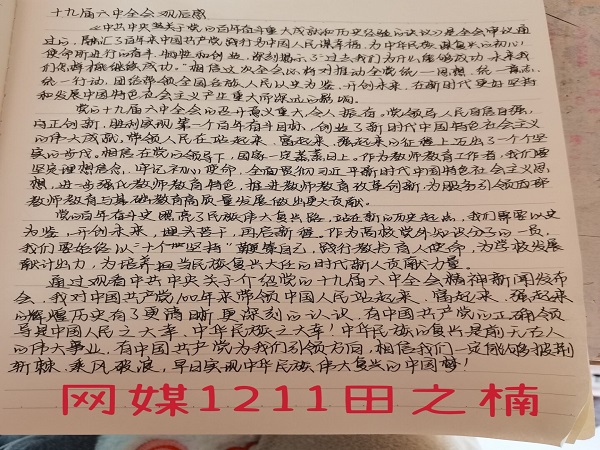 十九届六中全会观后感
《中共中央关于党的百年奋斗重大成就和历史经验的决议》是全会审议通
过的,融汇了百年来中国共产党践行为中国人民谋幸福,为中华民族谋复兴的初心
使命所进行的奋斗、牺牲和创业,深刻揭示了"过去我们为什么能够成功、未来我
们怎样继续成功。"相信这次全会必将对推动全党统一思想、统一意志、
统一行动,团结带领全国各族人民以史为鉴、开创未来,在新时代更好坚持
和发展中国特色社会主义产生重大而深远的影响。
党的十九届六中全会的召开意义重大,令人振奋。党领导人民自信自强、
守正创新,胜利实现第一个百年奋斗目标,创造了新时代中国特色社会主义
的伟大成就,带领人民在站起来、富起来、强起来的征程上迈出了一个个坚
实的步伐。相信在党的领导下,国家一定蒸蒸日上。作为教师教育工作者,我们要
坚定理想信念,牢记初心使命,全面贯彻习近平新时代中国特色社会主义思
想,进一步强化教师教育特色,推进教师教育改革创新,为服务引领西部
教师教育与基础教育高质量发展做出更大贡献。
党的百年奋斗史照亮了民族伟大复兴路,站在新的历史起点,我们更要以史
为鉴,开创未来,埋头苦干,再启新卷。作为高校党外知识分子的一员,
我们要始终以"十个坚持"鞭策自己,践行教书育人使命,为学校发展
献计出力,为培养担当民族复兴大任的时代新人贡献力量。
通过观看中共中央关于介绍党的十九届六中全会精神新闻发布
会,我对中国共产党100年来带领中国人民站起来、富起来、强起来
的辉煌历史有了更清晰更深刻的认识,有中国共产党的正确领
导是中国人民之大幸、中华民族之大幸!中华民族的复兴是前无古人
的伟大事业,有中国共产党为我们引领方向,相信我们一定能够披荆
斩棘、乘风破浪,早日实现中华民族伟大复兴的中国梦!
网媒1211田之楠